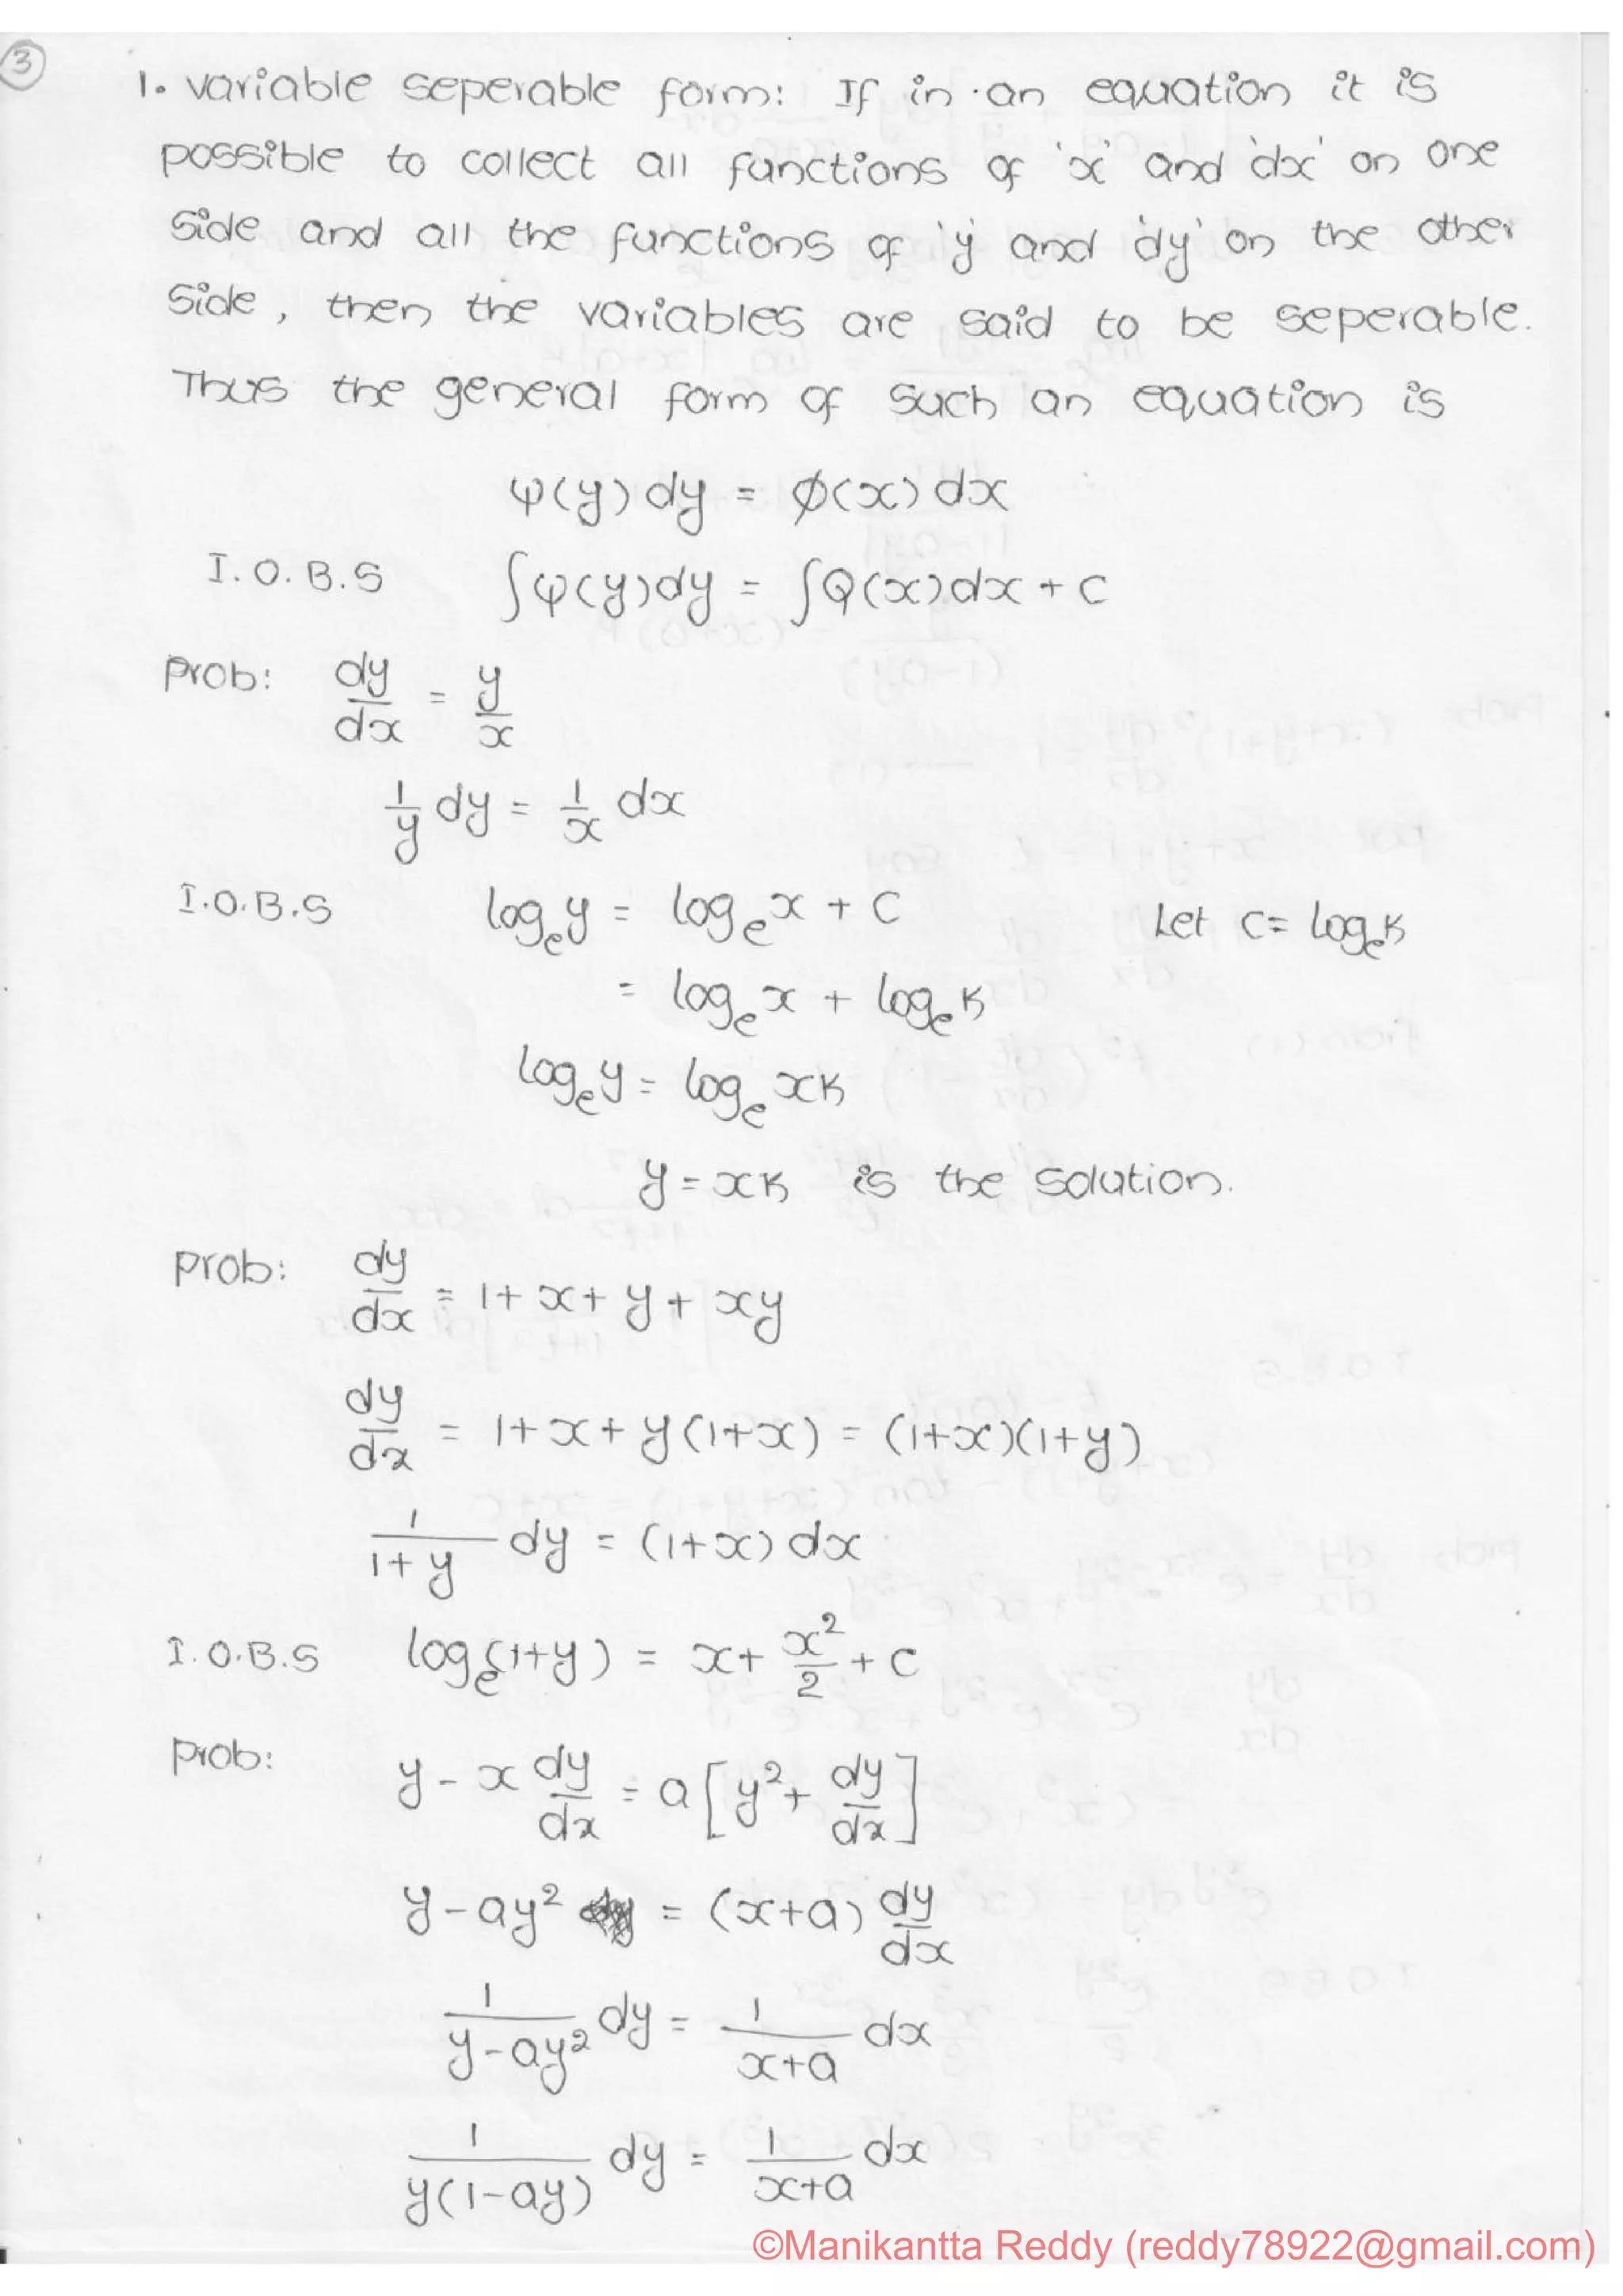 3
1. variable seperable form: If in an equation it is
possible to collect all functions of 'x' and 'dx' on one
side and all the functions of 'y' and 'dy' on the other
side, then the variables are said to be seperable.
Thus the general form of such an equation is
ψ(y) dy = ϕ(x) dx
I.O.B.S ∫ψ(y)dy = ∫Q(x)dx + C
Prob: dy/dx = y/x
1/y dy = 1/x dx
I.O.B.S logₑy = logₑx + C Let C = logₑK
= logₑx + logₑK
logₑy = logₑxK
y = xK is the solution.
Prob: dy/dx = 1+x+y+xy
dy/dx = 1+x+y(1+x) = (1+x)(1+y)
1/(1+y) dy = (1+x) dx
I.O.B.S logₑ(1+y) = x + x²/2 + C
Prob: y - x dy/dx = a[y² + dy/dx]
y - ay² = (x+a) dy/dx
1/(y-ay²) dy = 1/(x+a) dx
1/(y(1-ay)) dy = 1/(x+a) dx
©Manikantta Reddy (reddy78922@gmail.com)